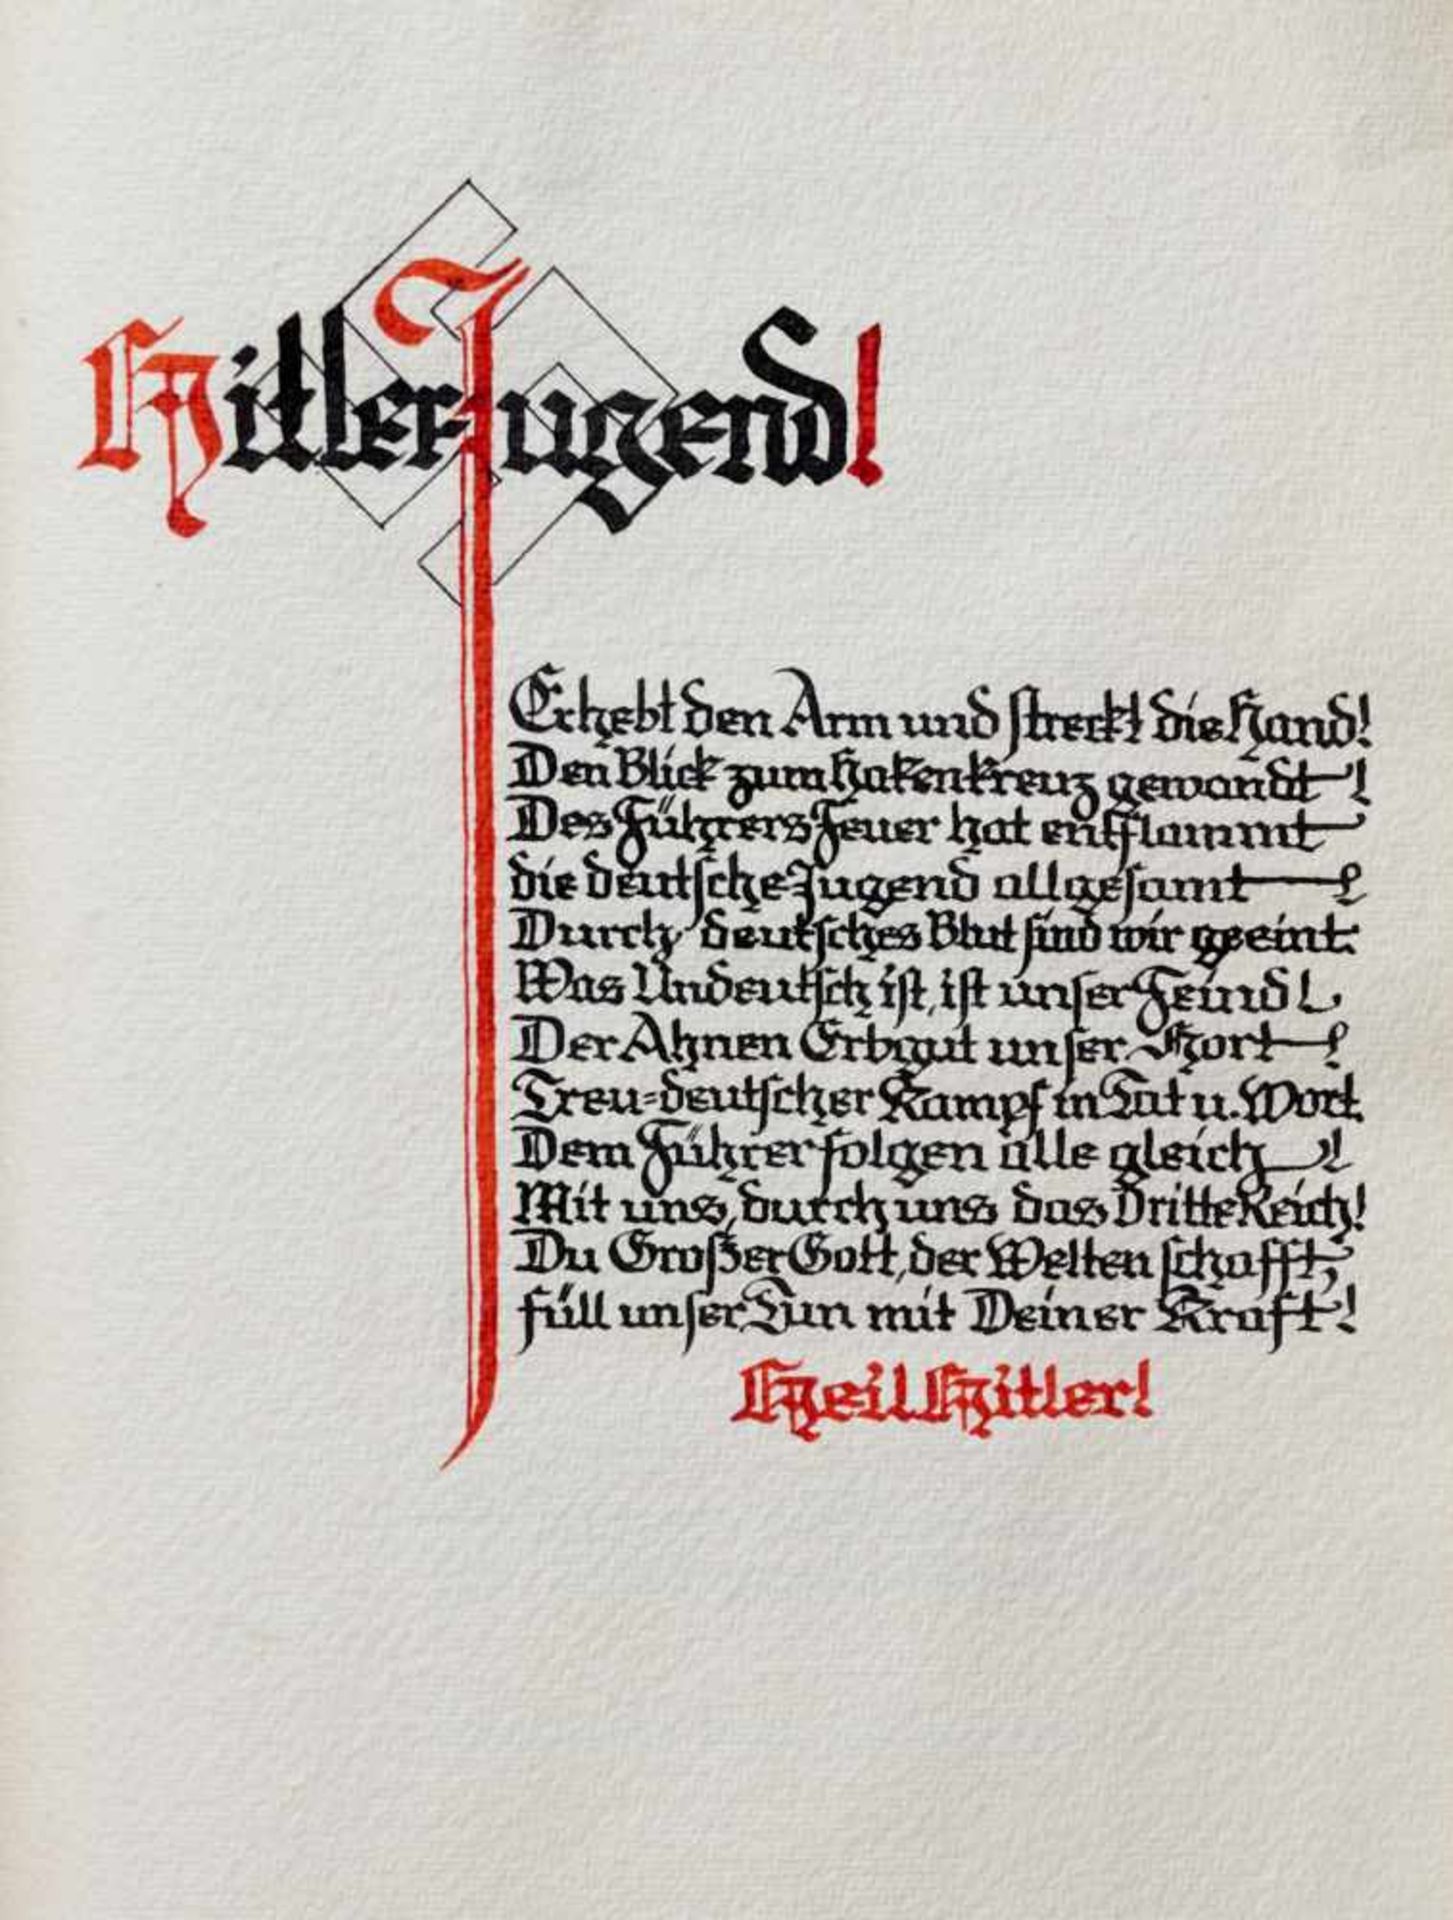 Hitler-Jugend!
Erhebt den Arm und streckt die Hand!
Den Blick zum Hakenkreuz gewandt!
Des Führers Feuer hat entflammt
die deutsche Jugend allgesamt!
Durch deutsches Blut sind wir geeint.
Was Undeutsch ist, ist unser Feind!
Der Ahnen Erbgut unser Hort!
Treu=deutscher Kampf in Tat u. Wort.
Dem Führer folgen alle gleich!
Mit uns, durch uns das Dritte Reich!
Du Großer Gott, der Welten schafft,
füll unser Tun mit Deiner Kraft!
Heil Hitler!